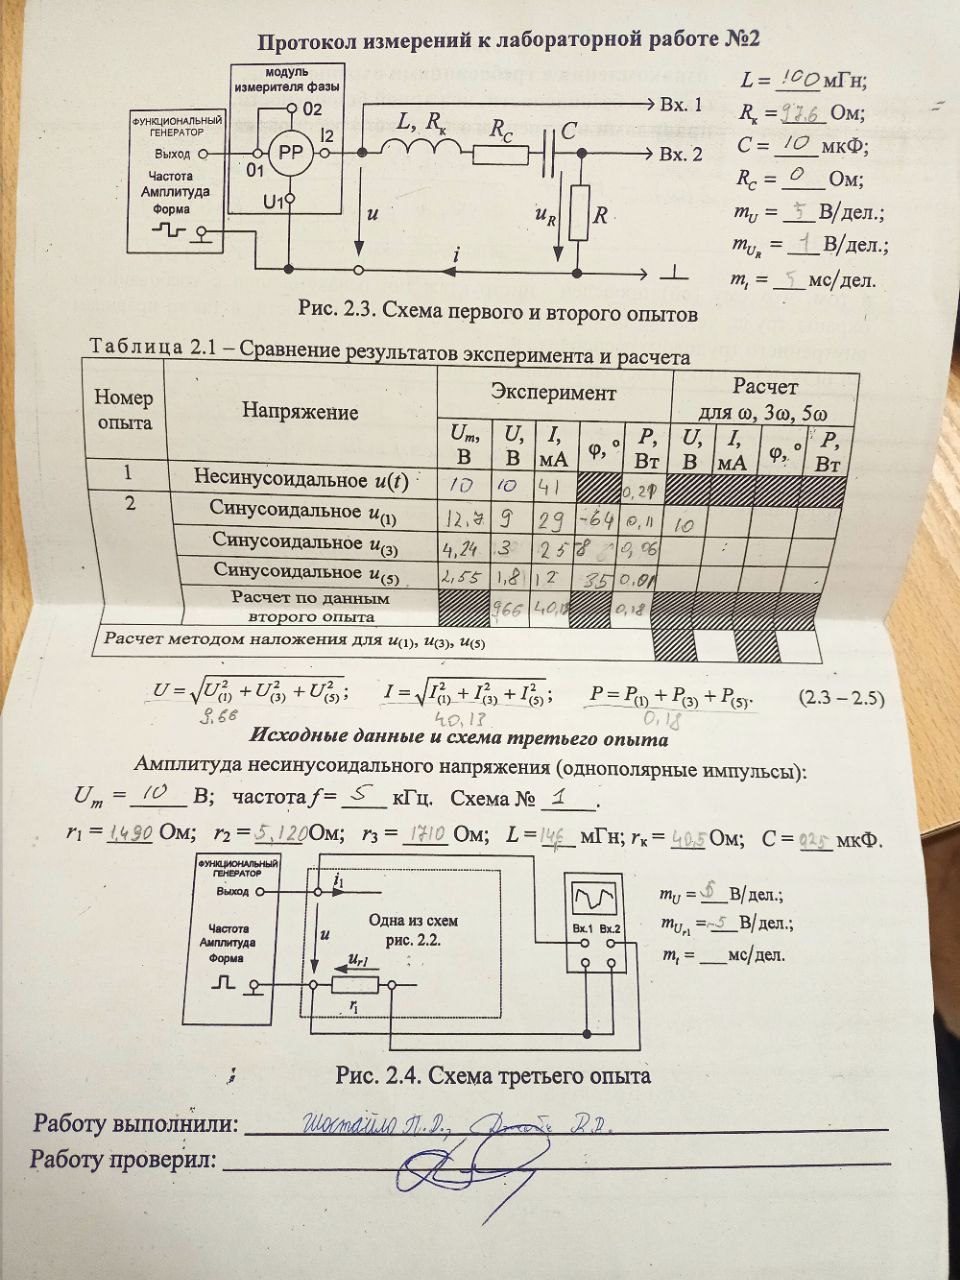 Протокол измерений к лабораторной работе №2
модуль
измерителя фазы
ФУНКЦИОНАЛЬНЫЙ
ГЕНЕРАТОР
Выход
Частота
Амплитуда
Форма
O2
PP
I2
O1
U1
L, Rк
RC
C
Вх. 1
Вх. 2
u
uR
R
i
L = 100 мГн;
Rк = 97,6 Ом;
C = 10 мкФ;
RC = 0 Ом;
mU = 5 В/дел.;
mUR = 1 В/дел.;
mt = 5 мс/дел.
Рис. 2.3. Схема первого и второго опытов
Таблица 2.1 – Сравнение результатов эксперимента и расчета
Номер опыта Напряжение Эксперимент Расчет для ω, 3ω, 5ω
Um, В U, В I, мА φ, ° P, Вт U, В I, мА φ, ° P, Вт
1 Несинусоидальное u(t) 10 10 41 0,21
2 Синусоидальное u(1) 12,7 9 29 -64 0,11 10
Синусоидальное u(3) 4,24 3 25 8 0,06
Синусоидальное u(5) 2,55 1,8 12 35 0,01
Расчет по данным второго опыта 9,66 40,13 0,18
Расчет методом наложения для u(1), u(3), u(5)
U = √U²(1) + U²(3) + U²(5); I = √I²(1) + I²(3) + I²(5); P = P(1) + P(3) + P(5). (2.3 – 2.5)
9,66 40,13 0,18
Исходные данные и схема третьего опыта
Амплитуда несинусоидального напряжения (однополярные импульсы):
Um = 10 В; частота f = 5 кГц. Схема № 1.
r1 = 1,490 Ом; r2 = 5,120 Ом; r3 = 1710 Ом; L = 146 мГн; rк = 40,5 Ом; C = 025 мкФ.
ФУНКЦИОНАЛЬНЫЙ
ГЕНЕРАТОР
Выход
Частота
Амплитуда
Форма
i1
u
Одна из схем
рис. 2.2.
ur1
r1
Вх.1 Вх.2
mU = 5 В/дел.;
mUr1 = 5 В/дел.;
mt = мс/дел.
Рис. 2.4. Схема третьего опыта
Работу выполнили: Шостайло П.Д.,
Работу проверил: